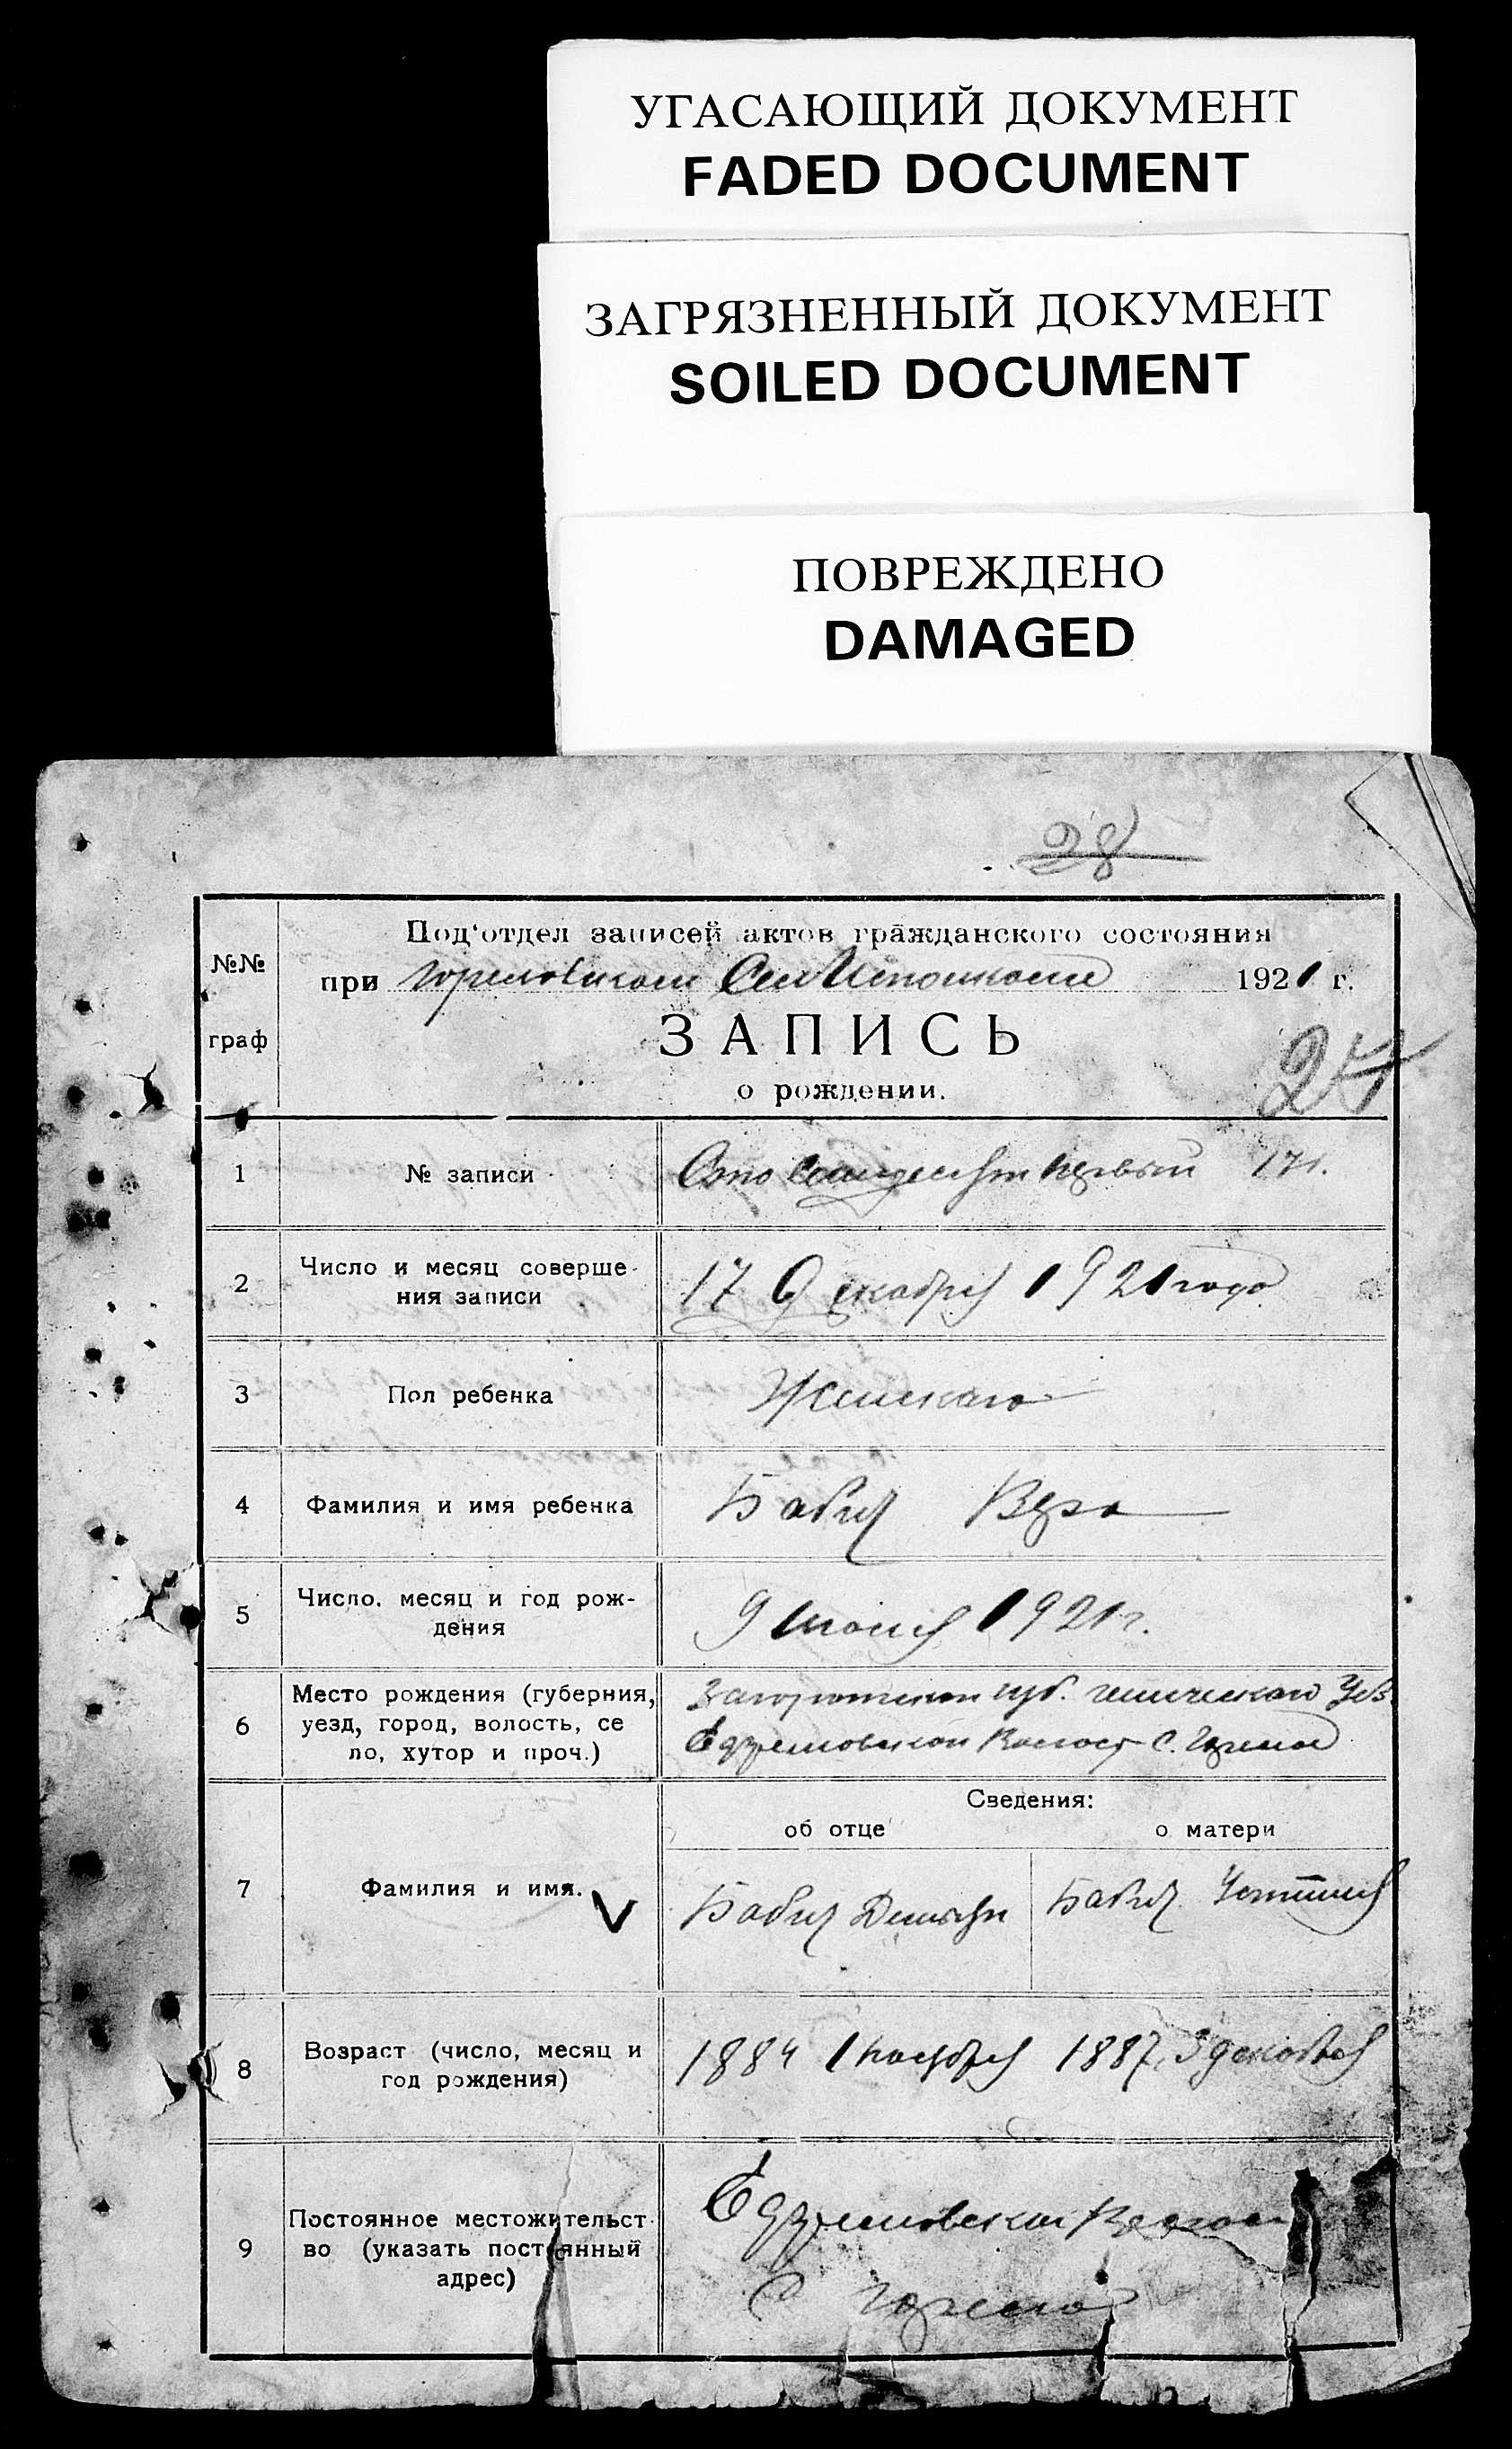 УГАСАЮЩИЙ ДОКУМЕНТ
FADED DOCUMENT
ЗАГРЯЗНЕННЫЙ ДОКУМЕНТ
SOILED DOCUMENT
ПОВРЕЖДЕНО
DAMAGED
28
Под'отдел записей актов гражданского состояния
№№
при 1921 г.
граф
ЗАПИСЬ
о рождении.
1 № записи Сто семидесят первый 171.
2 Число и месяц соверше-
ния записи
17 Декабря 1921 года
3 Пол ребенка Женскаго
4 Фамилия и имя ребенка Бабич Вера
5 Число, месяц и год рож-
дения
9 Июня 1921 г.
6 Место рождения (губерния,
уезд, город, волость, се
ло, хутор и проч.)
губ. Уез
С.
Сведения:
об отце о матери
7 Фамилия и имя. V Бабич Демьян Бабич Устиния
8 Возраст (число, месяц и
год рождения)
1884 1 ноября 1887, 3 декабря
9 Постоянное местожительст-
во (указать постоянный
адрес)
с